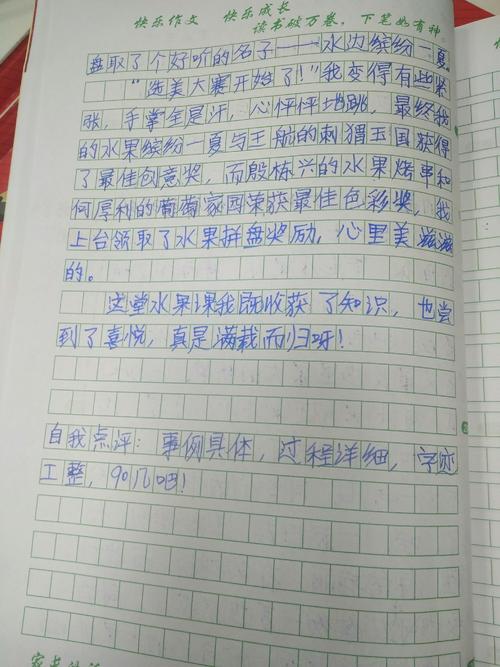 快乐作文 快乐成长
读书破万卷，下笔如有神
盘取了个好听的名子——水边缤纷一夏。
“选美大赛开始了！”我变得有些紧
张，手掌全是汗，心怦怦地跳，最终我
的水果缤纷一夏与王航的刺猬王国获得
了最佳创意奖，而殷栋兴的水果烤串和
何厚利的葡萄家园荣获最佳色彩奖，我
上台领取了水果拼盘奖励，心里美滋滋
的。
这堂水果课我既收获了知识，也尝
到了喜悦，真是满载而归呀！
自我点评：事例具体，过程详细，字迹
工整，90几吧！